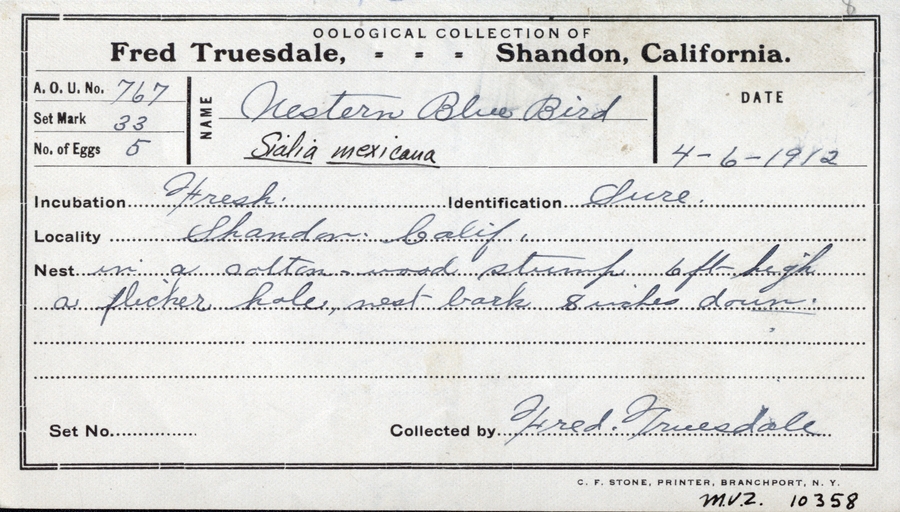 OOLOGICAL COLLECTION OF
Fred Truesdale, = = = Shandon, California.
A. O. U. No. 767
Set Mark 33
No. of Eggs 5
NAME
Western Blue Bird
Sialia mexicana
DATE
4-6-1912
Incubation Fresh. Identification Sure.
Locality Shandon. Calif.
Nest in a cotton-wood stump 6 ft high
a flicker hole, nest bark 8 inches down.
Set No. Collected by Fred. Truesdale
C. F. STONE, PRINTER, BRANCHPORT, N. Y.
M.V.Z. 10358